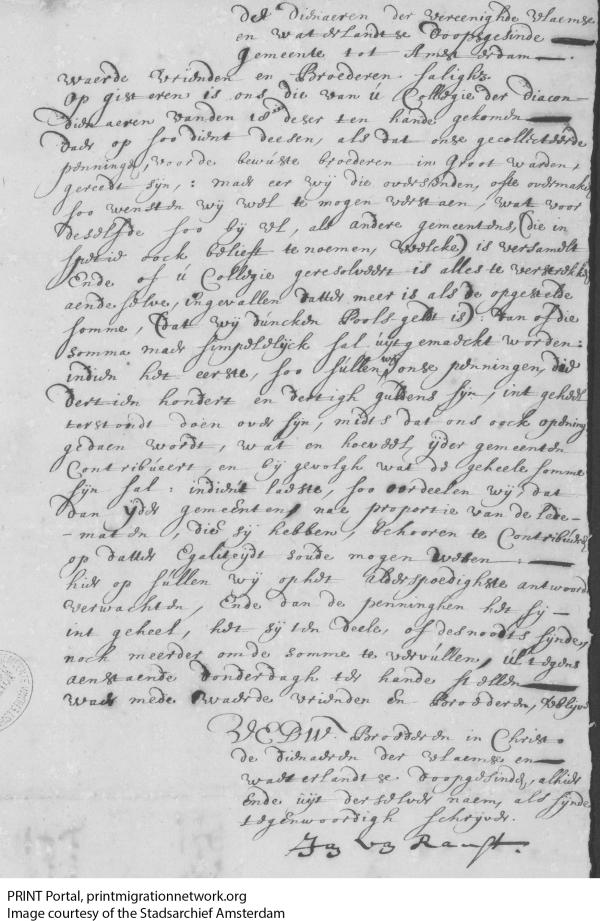 Des Dienaeren der vereenighde vlaemse
en waterlandtse Doopgesinde
Gemeente tot Amsterdam.
Waerde Vrienden en Broederen Salighz
Op gisteren is ons die van ú Collegie der diacon-
Dienaeren vanden 18en deser ten hande gekomen
daer op soo dient deesen, als dat onse gecollecteerde
penningen, voor de bewúste broederen in Groot warden,
gereedt sijn,: maer eer wij die oversenden, ofte overmaken
soo wensten wij wel te mogen verstaen, wat voor
deselfde soo bij vl, als andere gemeentens, (die in
spetie oock beliest te noemen, welcke) is versamelt
Ende of ú Collegie geresolveert is alles te verstrecken
aende selve, ingevallen datter meer is als de opgestelde
somme, (dat wij dúncken Pools gelt is): dan of die
somma maer simpelelijck sal úijtgemaeckt worden:
indien het eerste, soo súllen wij onse penningen, die
dertien hondert en dertigh guldens sijn, int geheel
terstondt doen over sijn, midts dat ons oock opening
gedaen wordt, wat en hoeveel ijder gemeenten
Contribúeert, en bij gevolgh wat de geheele somme
sijn sal: indient laeste, soo oordeelen wij, dat
dan ijder gemeenten, nae proportie van de lede-
-maten, die sij hebben, behooren te Contribúeren
op datter Egaliteijdt soude mogen wesen:
hier op súllen wij op het alderspoedighste antwoord
verwachten, Ende dan de penninghen het sij-
int geheel, het sij ten deele, of desnoodts sijnde,
noch meerder om de somme te vervúllen, úl tegens
aenstaende donderdagh ter hande stellen
waer mede Waerde vrienden en Broederen, verblijve
VEDW. Broederen in Christo
de dienaeren der vlaemse en
waeterlandtse doopgesinde, alhier
Ende úijt derselver naem, als sijnde
tegenwoordigh schrijver.
PRINT Portal, printmigrationnetwork.org
Image courtesy of the Stadsarchief Amsterdam